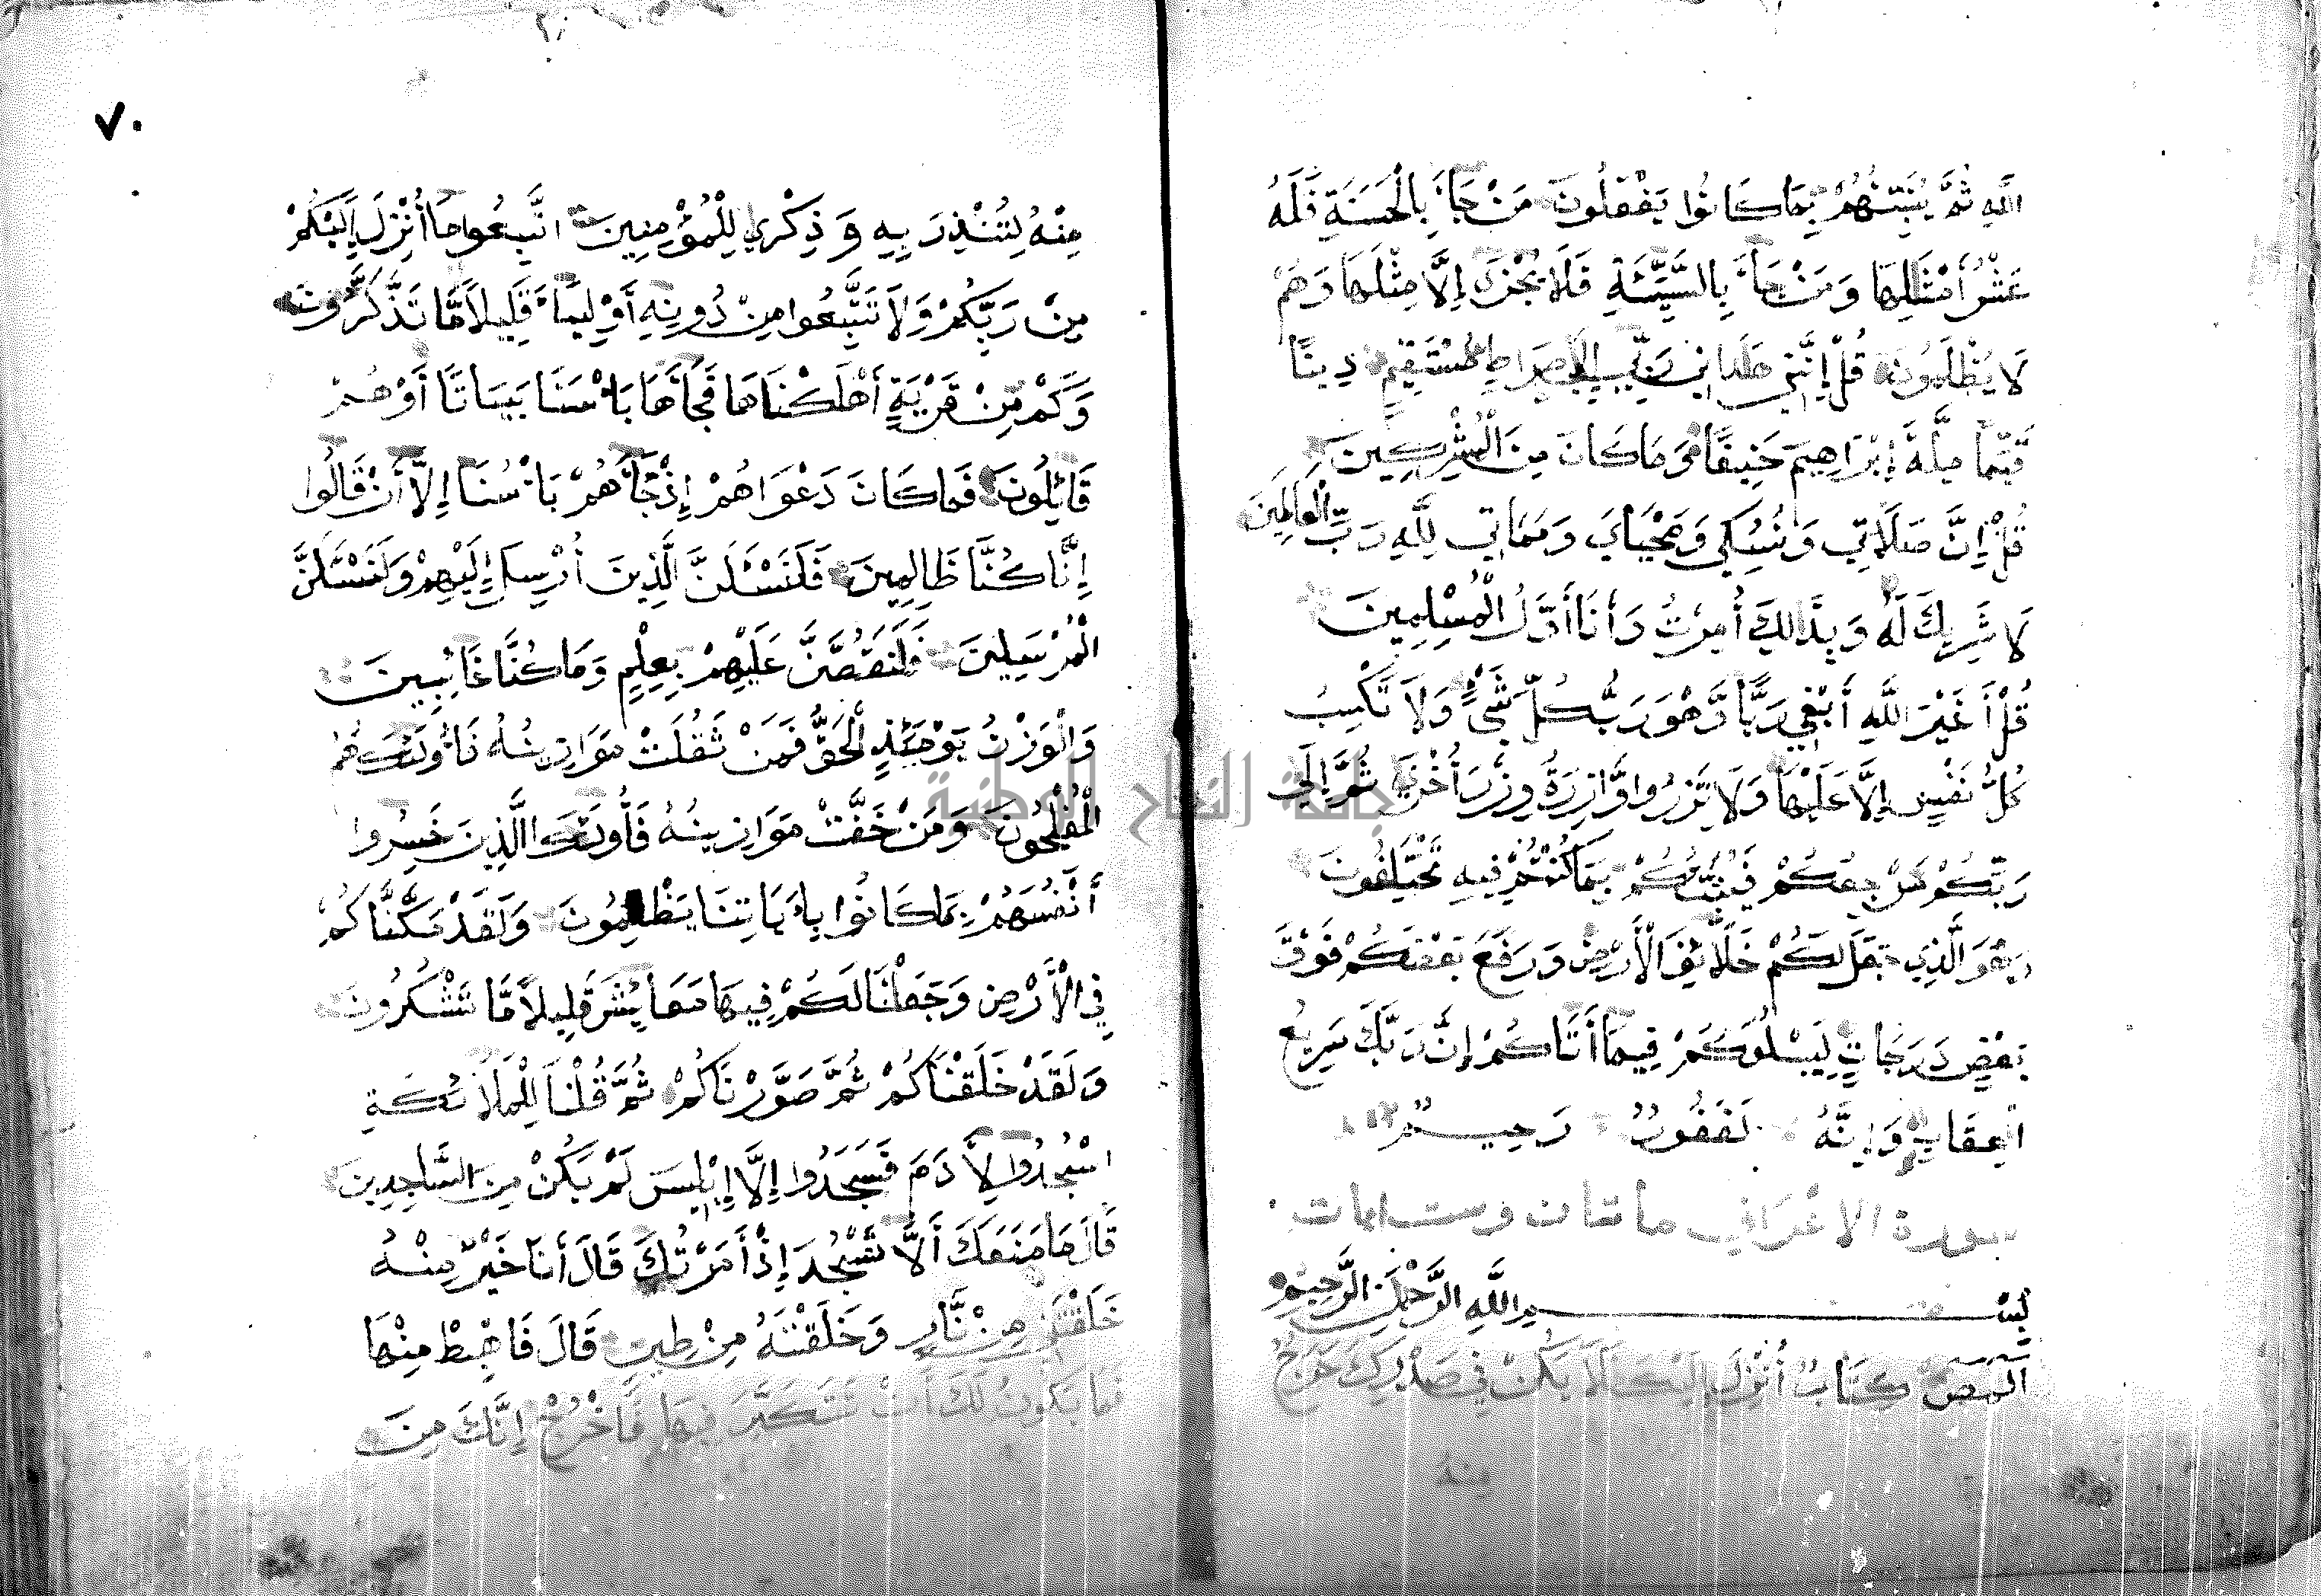 اللَّهِ ثُمَّ يُنَبِّئُهُمْ بِمَا كَانُوا يَفْعَلُونَ مَنْ جَاءَ بِالْحَسَنَةِ فَلَهُ
عَشْرُ أَمْثَالِهَا وَمَنْ جَاءَ بِالسَّيِّئَةِ فَلَا يُجْزَى إِلَّا مِثْلَهَا وَهُمْ
لَا يُظْلَمُونَ قُلْ إِنَّنِي هَدَانِي رَبِّي إِلَى صِرَاطٍ مُسْتَقِيمٍ دِينًا
قَيِّمًا مِلَّةَ إِبْرَاهِيمَ حَنِيفًا وَمَا كَانَ مِنَ الْمُشْرِكِينَ
قُلْ إِنَّ صَلَاتِي وَنُسُكِي وَمَحْيَايَ وَمَمَاتِي لِلَّهِ رَبِّ الْعَالَمِينَ
لَا شَرِيكَ لَهُ وَبِذَالِكَ أُمِرْتُ وَأَنَا أَوَّلُ الْمُسْلِمِينَ
قُلْ أَغَيْرَ اللَّهِ أَبْغِي رَبًّا وَهُوَ رَبُّ كُلِّ شَيْءٍ وَلَا تَكْسِبُ
كُلُّ نَفْسٍ إِلَّا عَلَيْهَا وَلَا تَزِرُ وَازِرَةٌ وِزْرَ أُخْرَى ثُمَّ إِلَى
رَبِّكُمْ مَرْجِعُكُمْ فَيُنَبِّئُكُمْ بِمَا كُنْتُمْ فِيهِ تَخْتَلِفُونَ
وَهُوَ الَّذِي جَعَلَكُمْ خَلَائِفَ الْأَرْضِ وَرَفَعَ بَعْضَكُمْ فَوْقَ
بَعْضٍ دَرَجَاتٍ لِيَبْلُوَكُمْ فِيمَا أَتَاكُمْ إِنَّ رَبَّكَ سَرِيعُ
الْعِقَابِ وَإِنَّهُ لَغَفُورٌ رَحِيمٌ
سورة الاعراف ماتتان وست ايات
بِسْمِ اللَّهِ الرَّحْمَنِ الرَّحِيمِ
الَمَصَ كِتَابٌ أُنْزِلَ إِلَيْكَ فَلَا يَكُنْ فِي صَدْرِكَ حَرَجٌ
٧٠
مِنْهُ لِتُنْذِرَ بِهِ وَذِكْرَى لِلْمُؤْمِنِينَ اتَّبِعُوا مَا أُنْزِلَ إِلَيْكُمْ
مِنْ رَبِّكُمْ وَلَا تَتَّبِعُوا مِنْ دُونِهِ أَوْلِيَاءَ قَلِيلًا مَّا تَذَّكَّرُونَ
وَكَمْ مِّنْ قَرْيَةٍ أَهْلَكْنَاهَا فَجَاءَهَا بَأْسُنَا بَيَاتًا أَوْ هُمْ
قَائِلُونَ فَمَا كَانَ دَعْوَاهُمْ إِذْ جَاءَهُمْ بَأْسُنَا إِلَّا أَنْ قَالُوا
إِنَّا كُنَّا ظَالِمِينَ فَلَنَسْئَلَنَّ الَّذِينَ أُرْسِلَ إِلَيْهِمْ وَلَنَسْئَلَنَّ
الْمُرْسَلِينَ فَلَنَقُصَّنَّ عَلَيْهِمْ بِعِلْمٍ وَمَا كُنَّا غَائِبِينَ
وَالْوَزْنُ يَوْمَئِذٍ الْحَقُّ فَمَنْ ثَقُلَتْ مَوَازِينُهُ فَأُولَئِكَ هُمُ
الْمُفْلِحُونَ وَمَنْ خَفَّتْ مَوَازِينُهُ فَأُولَئِكَ الَّذِينَ خَسِرُوا
أَنْفُسَهُمْ بِمَا كَانُوا بِآيَاتِنَا يَظْلِمُونَ وَلَقَدْ مَكَّنَّاكُمْ
فِي الْأَرْضِ وَجَعَلْنَا لَكُمْ فِيهَا مَعَايِشَ قَلِيلًا مَّا تَشْكُرُونَ
وَلَقَدْ خَلَقْنَاكُمْ ثُمَّ صَوَّرْنَاكُمْ ثُمَّ قُلْنَا لِلْمَلَائِكَةِ
اسْجُدُوا لِآدَمَ فَسَجَدُوا إِلَّا إِبْلِيسَ لَمْ يَكُنْ مِنَ السَّاجِدِينَ
قَالَ مَا مَنَعَكَ أَلَّا تَسْجُدَ إِذْ أَمَرْتُكَ قَالَ أَنَا خَيْرٌ مِنْهُ
خَلَقْتَنِي مِنْ نَّارٍ وَخَلَقْتَهُ مِنْ طِينٍ قَالَ فَاهْبِطْ مِنْهَا
فَمَا يَكُونُ لَكَ أَنْ تَتَكَبَّرَ فِيهَا فَاخْرُجْ إِنَّكَ مِنَ
جامعة النجاح الوطنية